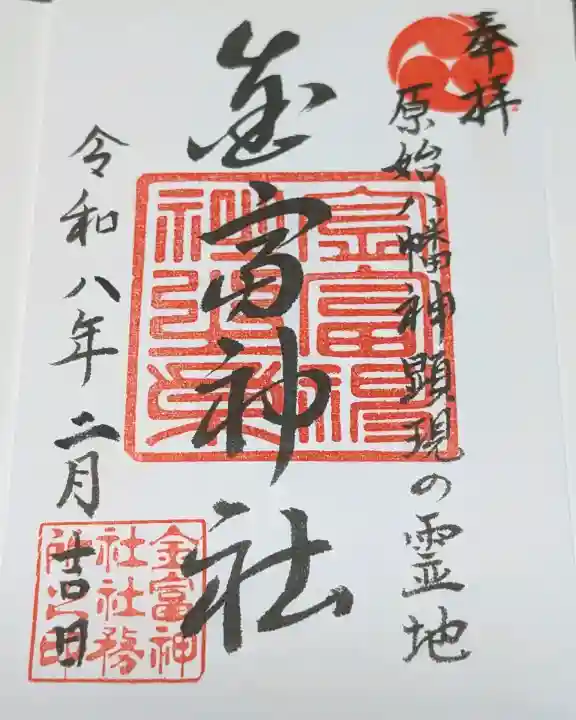 奉拝
原始八幡神顕現の霊地
金富神社
令和八年二月
金富神
社社務
所之印